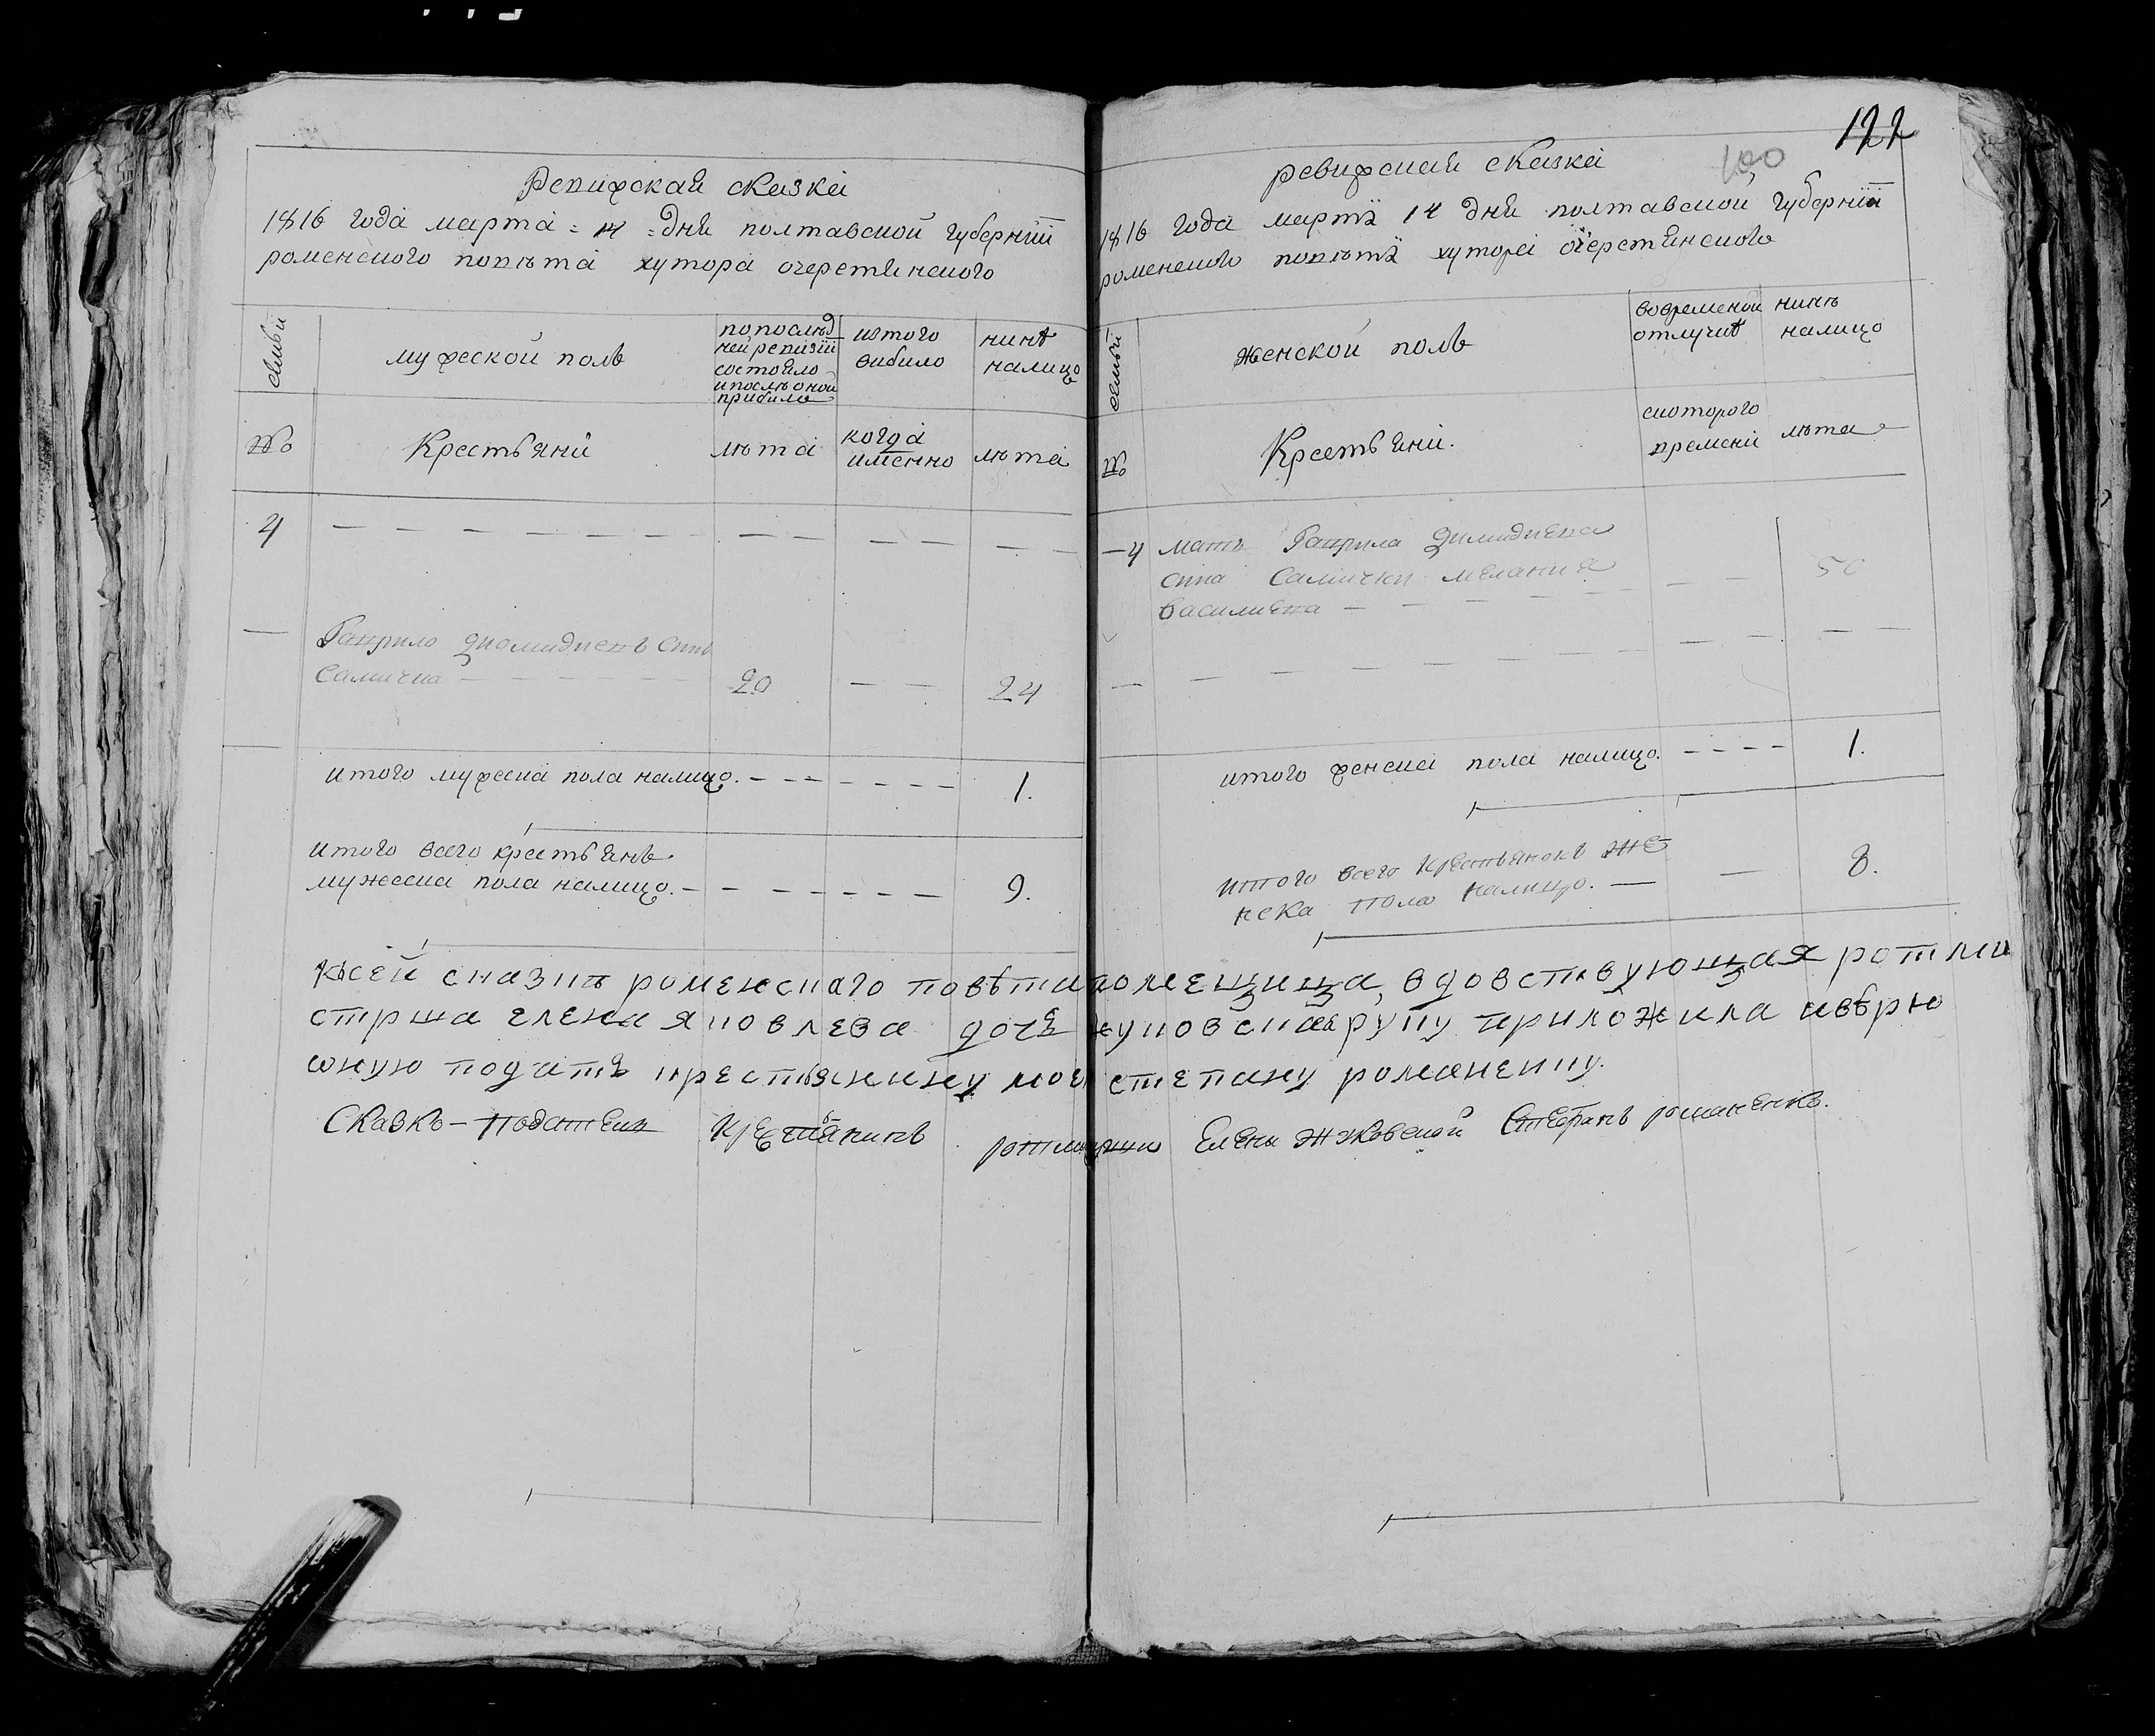 Ревизская сказка
1816 года марта = 14 = дня полтавской губернїи
роменского повѣта хутора очеретянского
семьи
мужеской полъ
попослѣд
ней ревизїи
состояло
и послѣ оной
прибило
изтого
вибило
нинѣ
налицо
№
Крестьяни
лѣта
когда
именно
лѣта
4
Гаврило Диомидиевъ синъ
Самична
20
24
итого мужеска пола налицо.
1.
итого всего крестьянъ
мужеска пола налицо.
9.
122
100
ревизская сказка
1816 года марта 14 дня полтавской губернїи
роменского повѣта хутора очеретянского
семьи
женской полъ
вовременой
отлучкѣ
нинѣ
налицо
№
Крестьяни.
скоторого
времени
лѣта
4
мать Гаврила Димидиева
сина Самички мелания
василиева
50
итого женска пола налицо.
1.
итого всего крестьянокъ же
нска пола налицо.
8.
Ксей сказкѣ роменскаго повѣта помещица, вдовствующая ротми
стрша елена яковлева дочь жуковская руку приложила ивѣрю
оную подать крестьянину моему степану романенку.
Сказкѣ – подателъ крестьянинъ ротмистрши Елены Жуковской Стефанъ романенко.